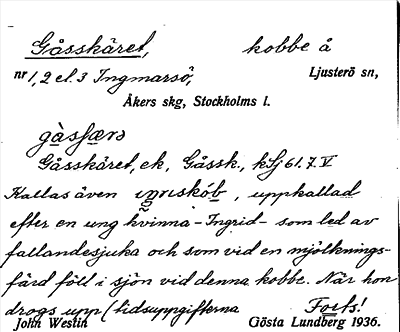 Gåsskäret, kobbe å
nr 1, 2 el. 3 Ingmarsö, Ljusterö sn,
Åkers skg, Stockholms l.
Gåsskäret, ek, Gåssk., kSj 61.7.V
Kallas även, uppkallad
efter en ung kvinna - Ingrid - som led av
fallandesjuka och som vid en mjölknings-
färd föll i sjön vid denna kobbe. När hon
drogs upp (tidsuppgifterna Forts!
John Westin Gösta Lundberg 1936.